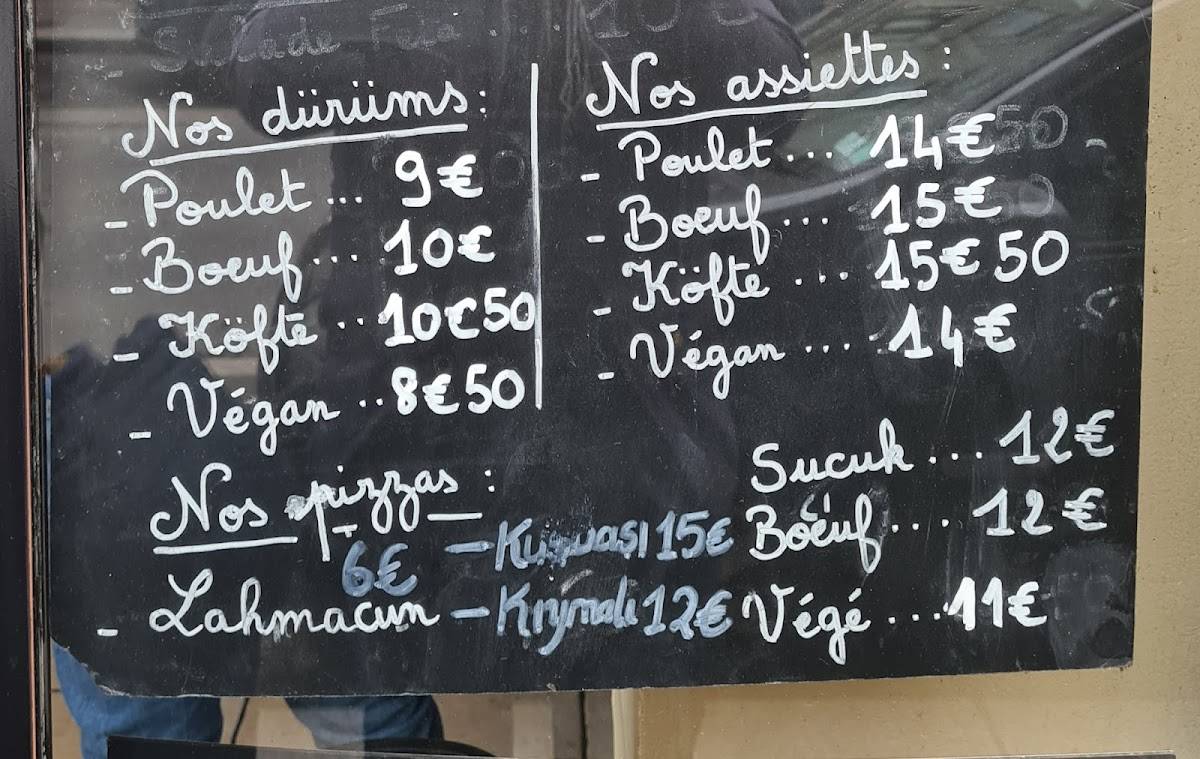 - Salade Feta ... 10€
Nos dürüms :
- Poulet ... 9€
- Boeuf ... 10€
- Köfte .. 10€50
- Végan .. 8€50
Nos assiettes :
- Poulet ... 14€
- Boeuf ... 15€
- Köfte ... 15€50
- Végan ... 14€
Nos pizzas :
6€
- Lahmacun
- 15€
- 12€
Sucuk ... 12€
Boeuf ... 12€
Végé ... 11€